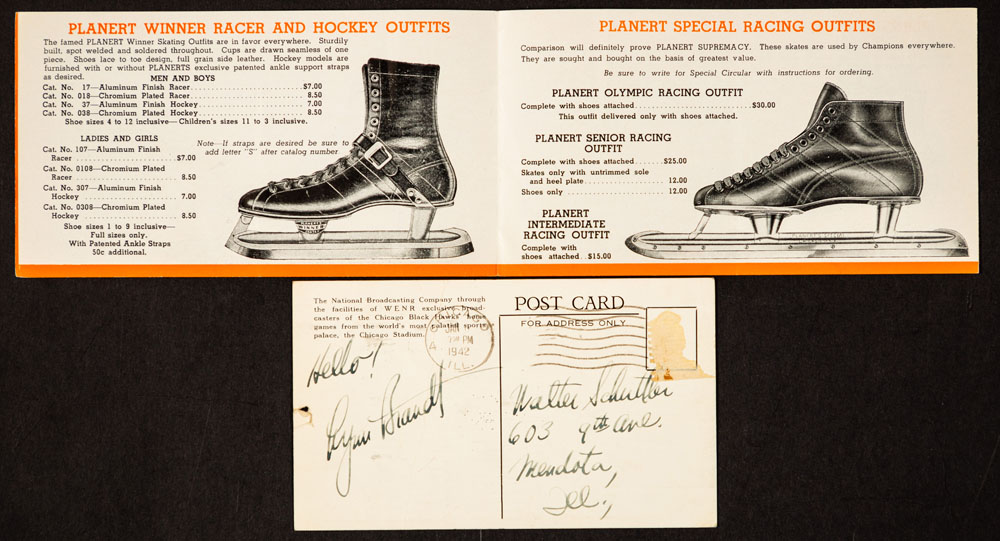 PLANERT WINNER RACER AND HOCKEY OUTFITS
The famed PLANERT Winner Skating Outfits are in favor everywhere. Sturdily
built, spot welded and soldered throughout. Cups are drawn seamless of one
piece. Shoes lace to toe design, full grain side leather. Hockey models are
furnished with or without PLANERTS exclusive patented ankle support straps
as desired.
MEN AND BOYS
Cat. No. 17—Aluminum Finish Racer $7.00
Cat. No. 018—Chromium Plated Racer 8.50
Cat. No. 37—Aluminum Finish Hockey 7.00
Cat. No. 038—Chromium Plated Hockey 8.50
Shoe sizes 4 to 12 inclusive—Children's sizes 11 to 3 inclusive.
LADIES AND GIRLS
Cat. No. 107—Aluminum Finish
Racer $7.00
Cat. No. 0108—Chromium Plated
Racer 8.50
Cat. No. 307—Aluminum Finish
Hockey 7.00
Cat. No. 0308—Chromium Plated
Hockey 8.50
Shoe sizes 1 to 9 inclusive—
Full sizes only.
With Patented Ankle Straps
50c additional.
Note—If straps are desired be sure to
add letter "S" after catalog number
PLANERT
WINNER
PLANERT SPECIAL RACING OUTFITS
Comparison will definitely prove PLANERT SUPREMACY. These skates are used by Champions everywhere.
They are sought and bought on the basis of greatest value.
Be sure to write for Special Circular with instructions for ordering.
PLANERT OLYMPIC RACING OUTFIT
Complete with shoes attached $30.00
This outfit delivered only with shoes attached.
PLANERT SENIOR RACING
OUTFIT
Complete with shoes attached $25.00
Skates only with untrimmed sole
and heel plate 12.00
Shoes only 12.00
PLANERT
INTERMEDIATE
RACING OUTFIT
Complete with
shoes attached $15.00
The National Broadcasting Company through
the facilities of WENR exclusive broad-
casters of the Chicago Black Hawks' home
games from the world's most palatial sports
palace, the Chicago Stadium.
POST CARD
FOR ADDRESS ONLY
JAN
PM
1942
ILL.
Hello!
Lynn Brandt
Walter
603 9th Ave.
Mendota,
Ill.,